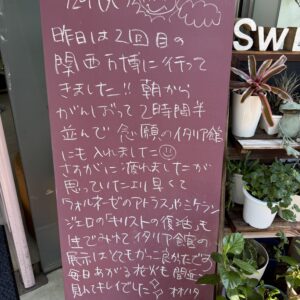 昨日は2回目の
関西万博に行って
きました!! 朝から
がんばって2時間半
並んで念願のイタリア館
にも入れました
さすがに疲れましたが
思っていたより早くて
ファルネーゼのアトラスやミケラン
ジェロの「キリストの復活」も
生でみれてイタリア館の
展示はとてもかっこ良かったです
毎日あがる花火も間近で
見れてキレイでした
SW